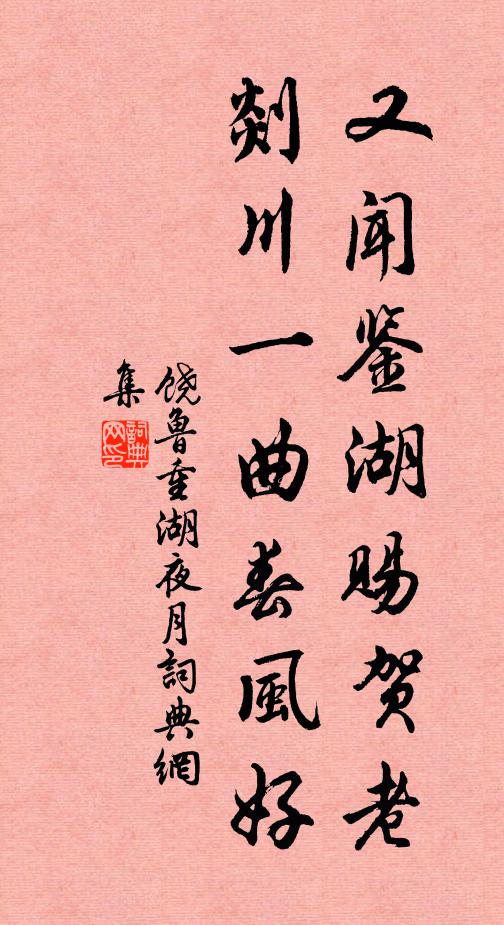 又闻鉴湖赐贺老
剡川一曲春風好
饶鲁重湖夜月詞典網
集
詞典
网印